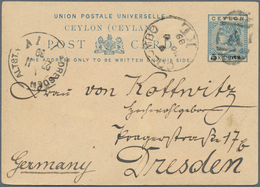 UNION POSTALE UNIVERSELLE
CEYLON (CEYLAN)
POST CARD
THE ADDRESS ONLY TO BE WRITTEN ON THIS SIDE
CEYLON
DRESDEN ALTST.
Frau von Kottwitz
Hochwohlgeboren
Pragerstrasse 17 b
Germany Dresden